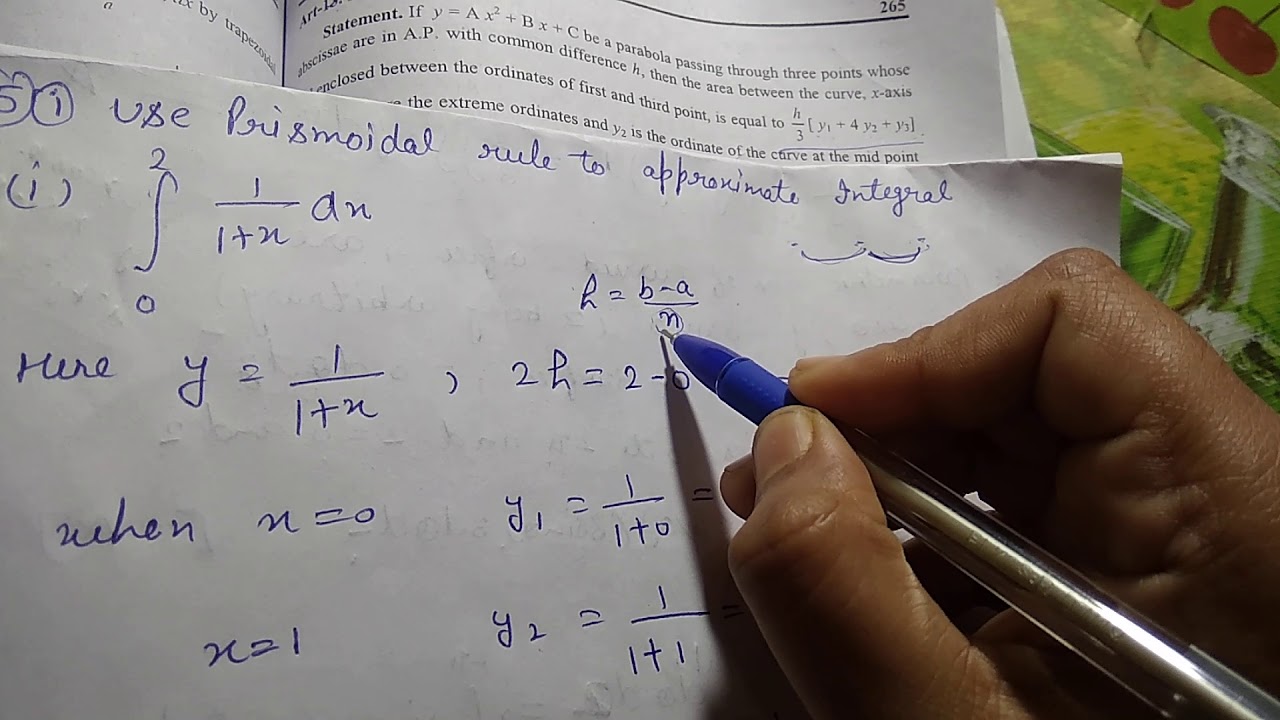 a
by trapezoidal
265
Statement. If y = A x² + B x + C be a parabola passing through three points whose
abscissae are in A.P. with common difference h, then the area between the curve, x-axis
enclosed between the ordinates of first and third point, is equal to h/3 [y₁ + 4 y₂ + y₃]
the extreme ordinates and y₂ is the ordinate of the curve at the mid point
5) ① Use Prismoidal rule to approximate Integral
(i) ∫₀² 1/(1+x) dx
h = (b-a)/n
Here y = 1/(1+x) , 2h = 2-0
when x=0 y₁ = 1/(1+0) =
x=1 y₂ = 1/(1+1) =